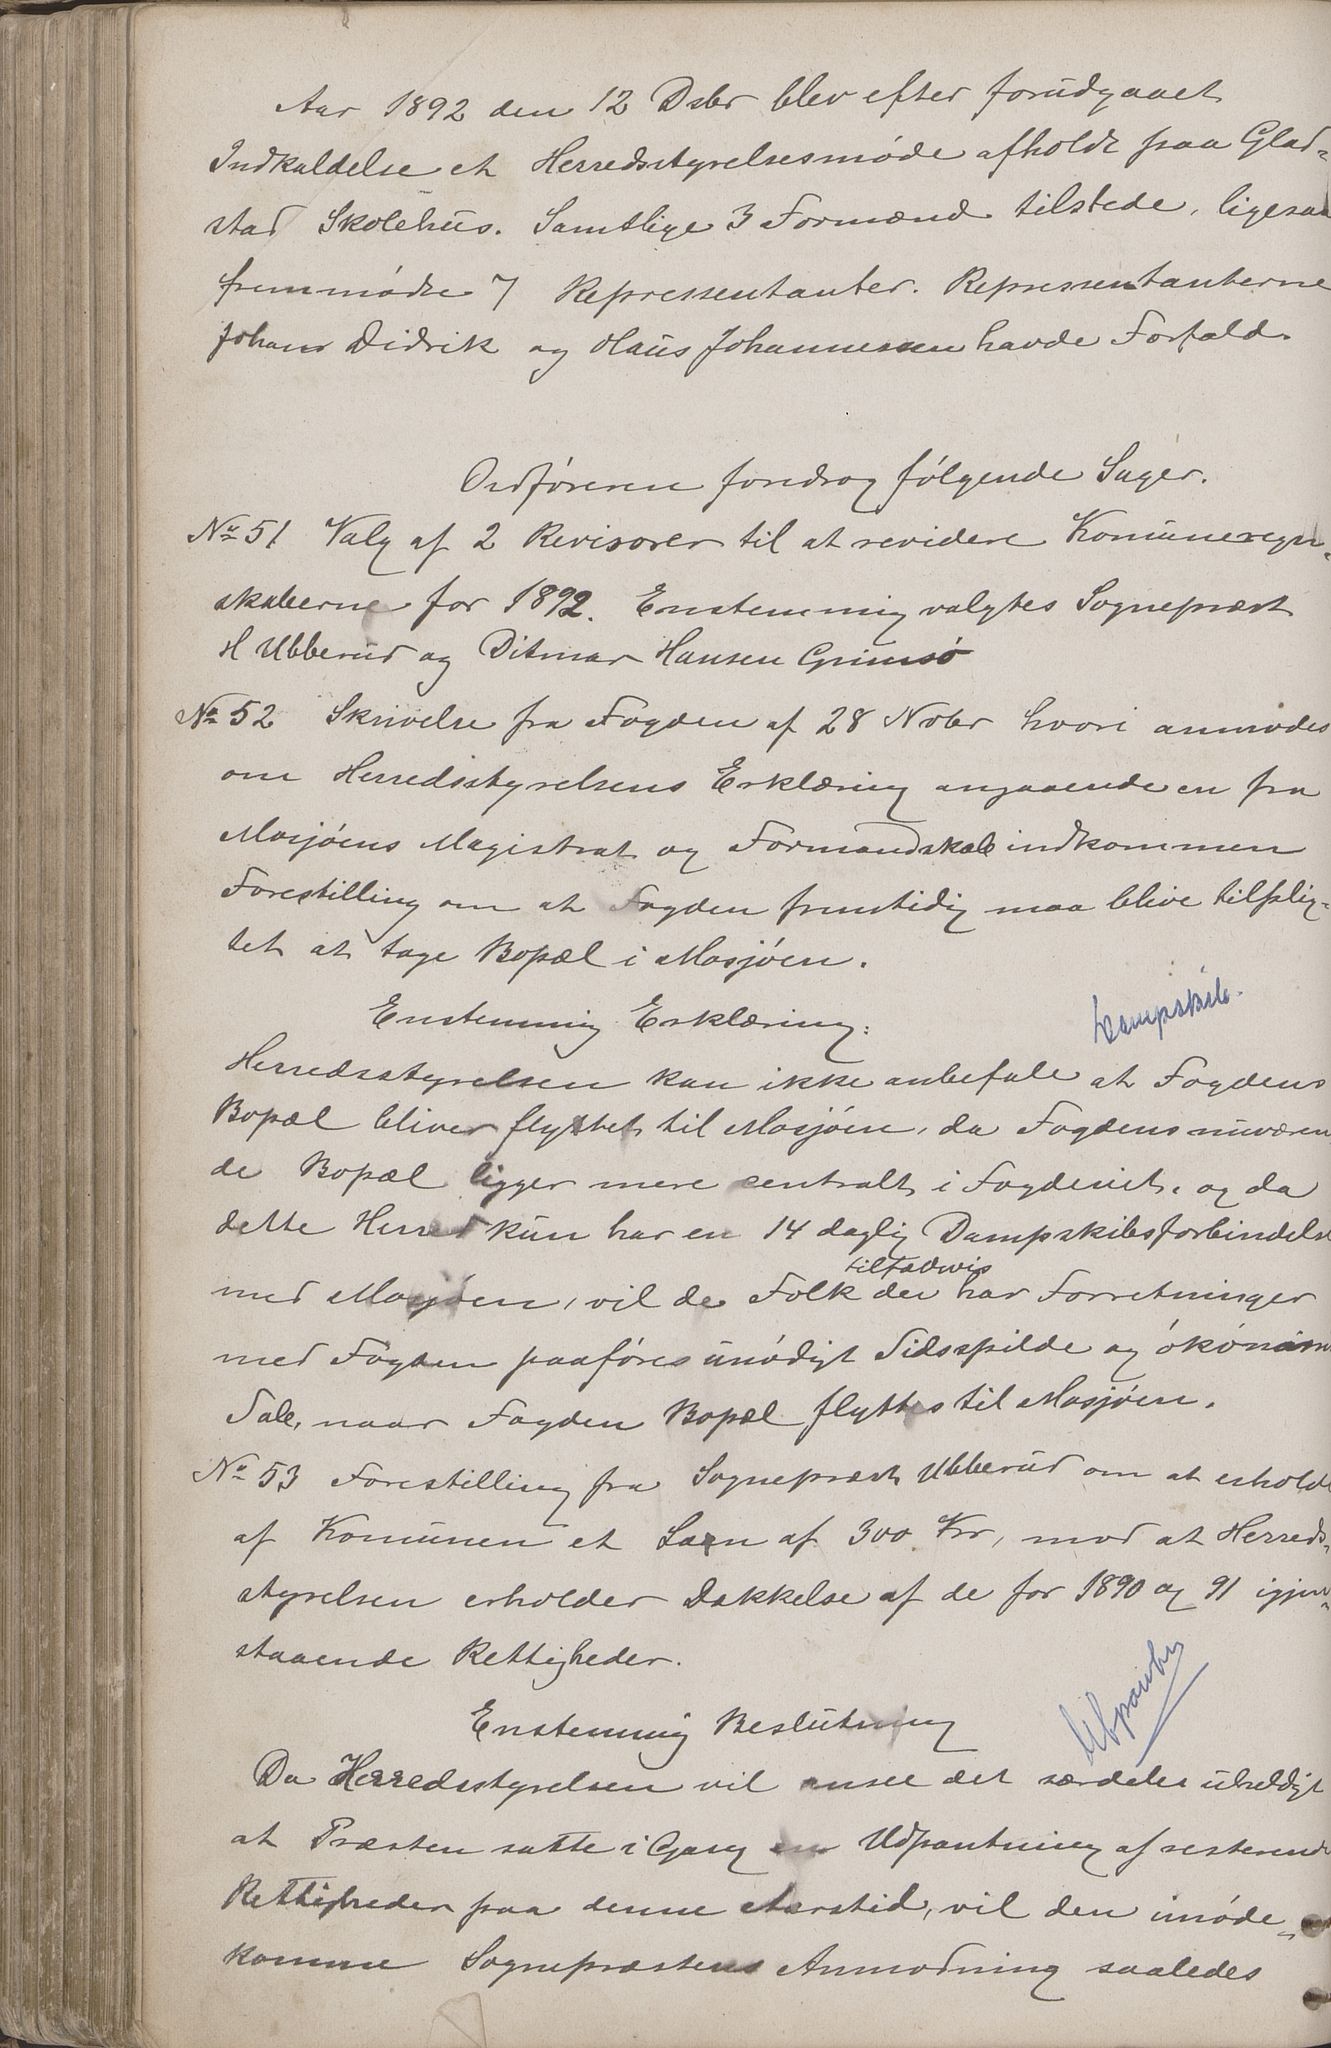 Aar 1892 den 12 Dsbr blev efter forudgaaet
Indkaldelse et Herredsstyrelsesmøde afholdt paa Glad-
stad Skolehus. Samtlige 3 Formænd tilstede, ligesaa
fremmødte 7 Repressentanter. Repressentanterne
Johan Didrik og Hans Johannessen havde Forfald.
Ordføreren foredrog følgende Sager.
No 51 Valg af 2 Revisorer til at revidere Komuneregn-
skaberne for 1892. Enstemmig valgtes Sogneprest
H Ubberud og Ditmar Hansen Grimsø
No 52 Skrivelse fra Fogden af 28 Novbr hvori anmodes
om Herredsstyrelsens Erklæring angaaende en fra
Mosjøens Magistrat og Formandskab indkommen
Forestilling om at Fogden fremtidig maa blive tilplig-
tet at tage Bopæl i Mosjøen.
Enstemmig Erklæring:
Dampskib.
Herredsstyrelsen kan ikke anbefale at Fogdens
Bopæl bliver flyttet til Mosjøen, da Fogdens nuværen
de Bopæl ligger mere sentralt i Fogderiet, og da
dette Herred kun har en 14 daglig Dampskibsforbindelse
med Mosjøen, vil de Folk der tilfædvis har Forretninger
med Fogden paaføres unødigt Tidsspilde og økonom
Tab, naar Fogden Bopæl flyttes til Mosjøen.
No 53 Forestilling fra Sogneprest Ubberud om at erholde
af Komunen et Laan af 300 Kr, mod at Herreds-
styrelsen erholder Dækkelse af de for 1890 og 91 igjen-
staaende Rettigheder.
Enstemmig Beslutning
Da Herredsstyrelsen vil ansee det særdeles uheldigt
at Præsten satte i Gang en Udpantning af resterende
Rettigheder paa denne Aarstid, vil den imøde-
komme Sogneprestens Anmodning saaledes